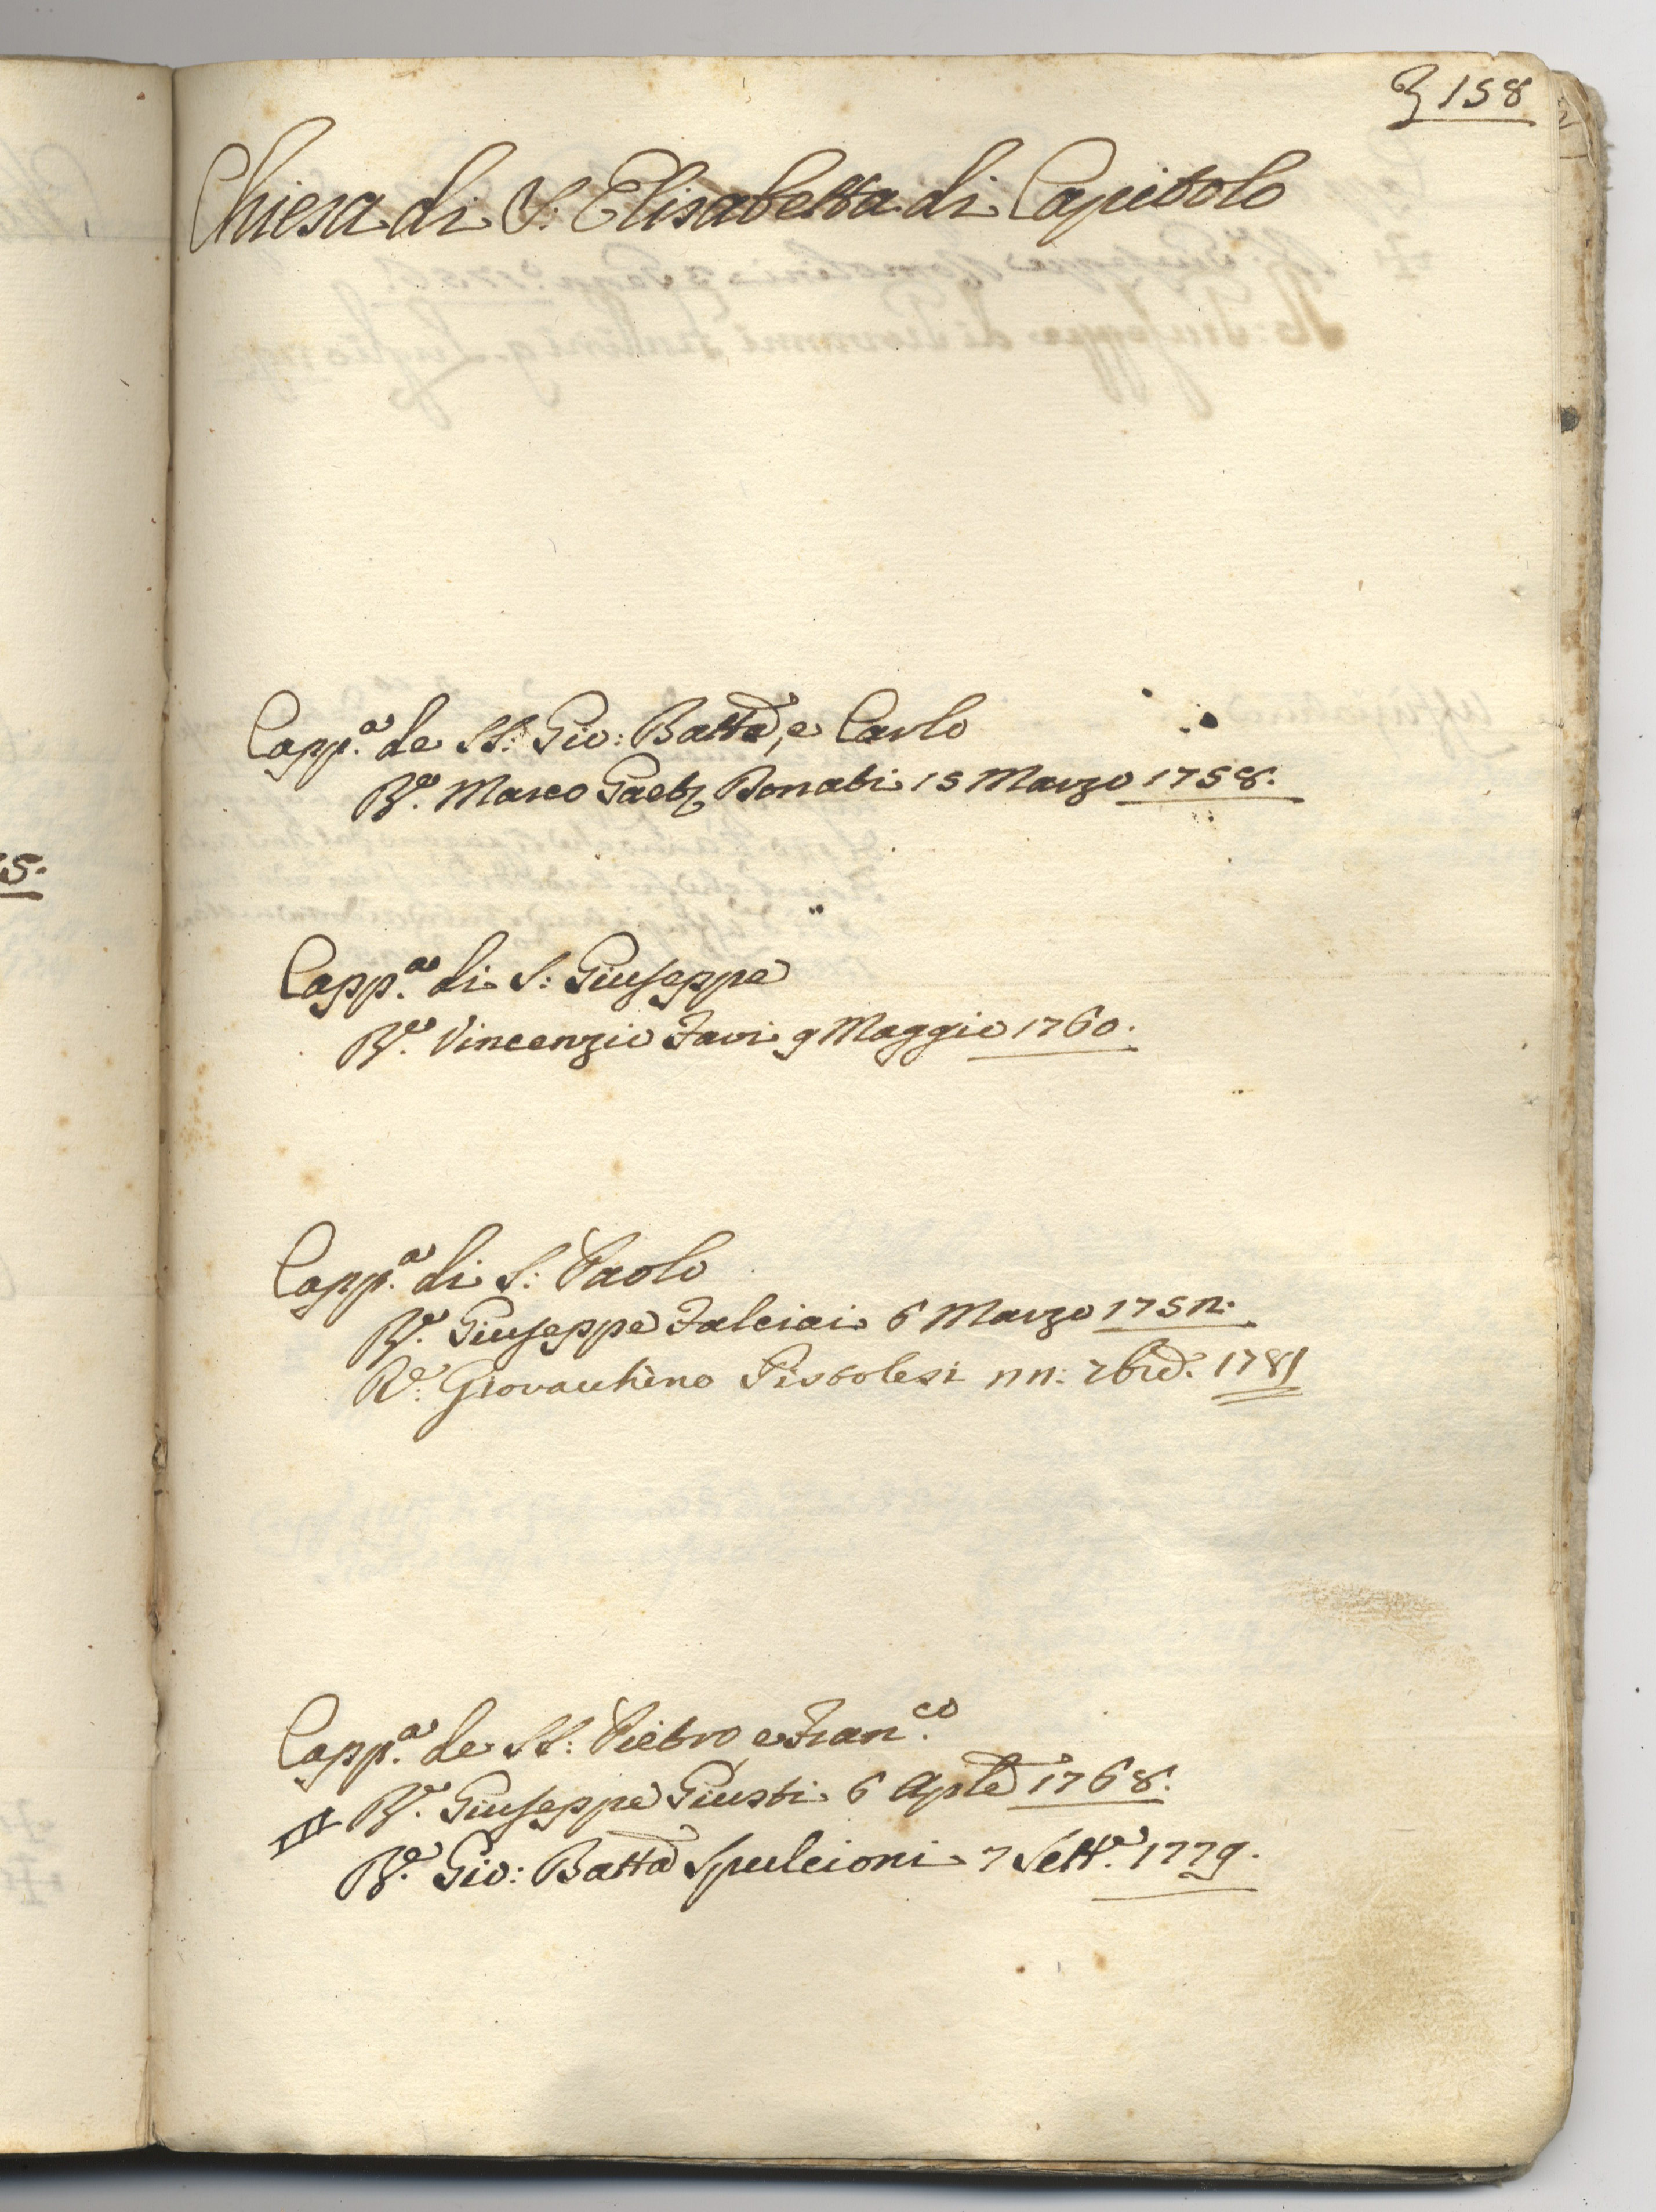 158
Chiesa di S. Elisabetta di Capitolo
Capp.a de SS: Gio: Batta, e Carlo
Rdo. Marco Gaet. Donati 15 Marzo 1758.
Capp.a di S: Giuseppe
Rdo. Vincenzio Favi 9 Maggio 1760.
Capp.a di S: Paolo
Rdo. Giuseppe Falciai 6 Marzo 1752.
Rdo. Giovacchino Pistolesi 22: 7bre. 1781
Capp.a de SS: Pietro e Fran.co
Rdo. Giuseppe Giusti 6 Aple 1768.
Rdo. Gio: Batta Spulcioni 7 Sett.e 1779.
5.